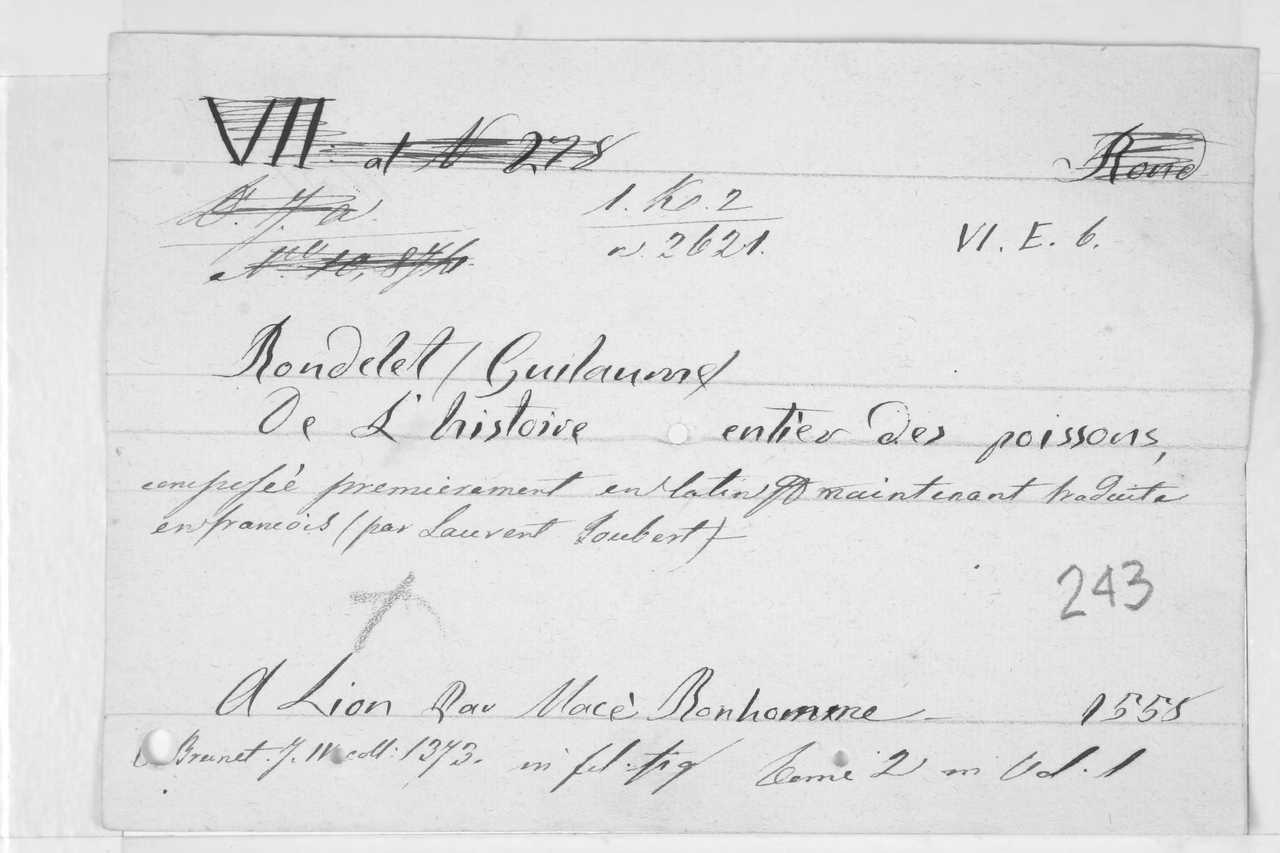 VII. al N 278
Rond
D. 7. a.
1. K. 2
n. 2621.
VI. E. 6.
Rondelet / Guilaume/
De L'histoire entier des poissons,
composée premierement en latin et maintenant traduite
en francois (par Laurent Joubert)
243
A Lion Par Macè Bonhomme 1558
Brunet. T. IV coll: 1373. in fol. fig Tome 2 in Vol. 1